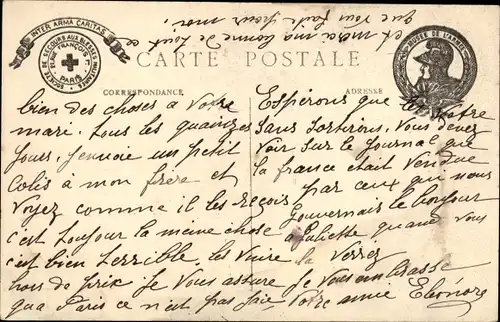 INTER ARMA CARITAS
SOCIÉTÉ DE SECOURS AUX BLESSÉS MILITAIRES
PARIS
MUSÉE DE L'ARMÉE
CARTE POSTALE
CORRESPONDANCE
ADRESSE
bien des choses a Votre
mari. Tous les quainzes
Jours, Jenvoie un petit
Colis à mon frère et
Voyez comme il les reçois
c'est toujour la meine chose
c'est bien terrible. les Vivre
hors de prix Je Vous assure
qua Paris ce n'est pas Joie
Espérons que Notre
Sans Sortirons. Vous devez
Voir Sur le Journal que
la france était Vendue
par ceux qui nous
Gouvernais le bonjour
a Juliette quand Vous
le Verrez
Je Vous embrasse
Votre amie Eléonore
et merci ma bonne de tout ce
que vous faite pour moi